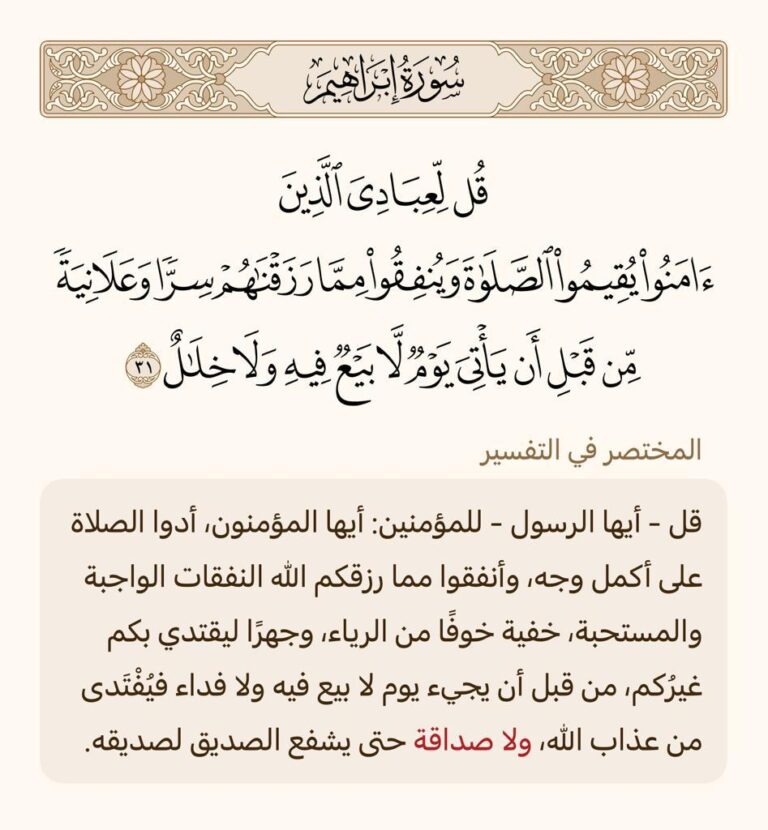 سُورَةُ إِبْرَاهِيمَ
قُل لِّعِبَادِىَ ٱلَّذِينَ
ءَامَنُوا۟ يُقِيمُوا۟ ٱلصَّلَوٰةَ وَيُنفِقُوا۟ مِمَّا رَزَقْنَٰهُمْ سِرًّا وَعَلَانِيَةً
مِّن قَبْلِ أَن يَأْتِىَ يَوْمٌ لَّا بَيْعٌ فِيهِ وَلَا خِلَٰلٌ ٣١
المختصر في التفسير
قل – أيها الرسول – للمؤمنين: أيها المؤمنون، أدوا الصلاة
على أكمل وجه، وأنفقوا مما رزقكم الله النفقات الواجبة
والمستحبة، خفية خوفًا من الرياء، وجهرًا ليقتدي بكم
غيرُكم، من قبل أن يجيء يوم لا بيع فيه ولا فداء فيُفْتَدى
من عذاب الله، ولا صداقة حتى يشفع الصديق لصديقه.